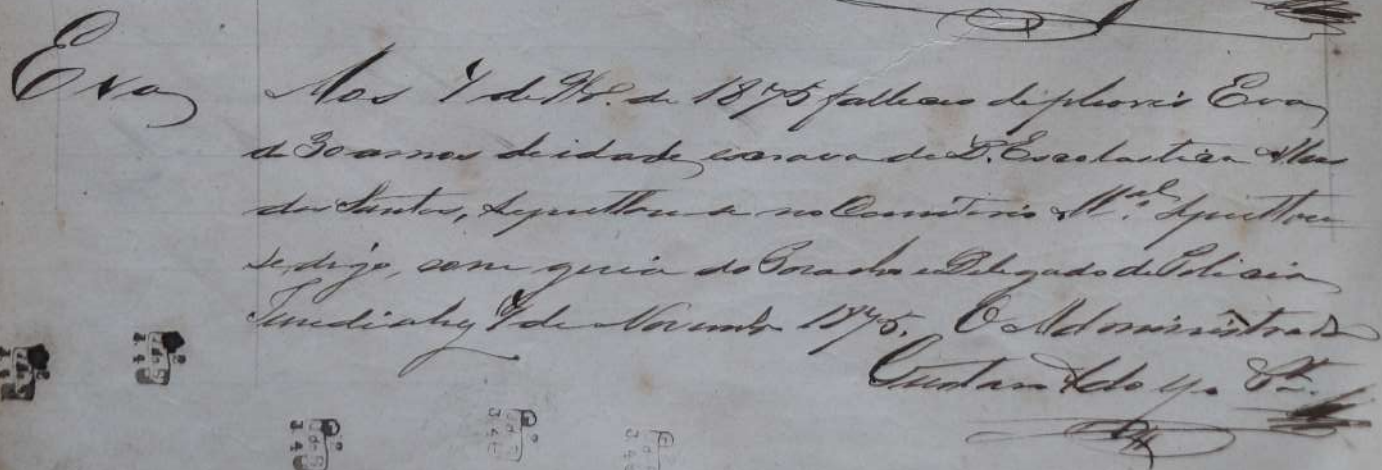 Eva
Aos 7 de 9br.º de 1875 falleceo de pleoris Eva
de 30 annos de idade, escrava de D. Escolastica
dos Santos, sepultou se no Cemiterio M.al sepultou
se, digo, com guia do Paracho e Delegado de Policia
Jundiahy 7 de Novembro 1875. O Administrador
Gustavo Adolpho